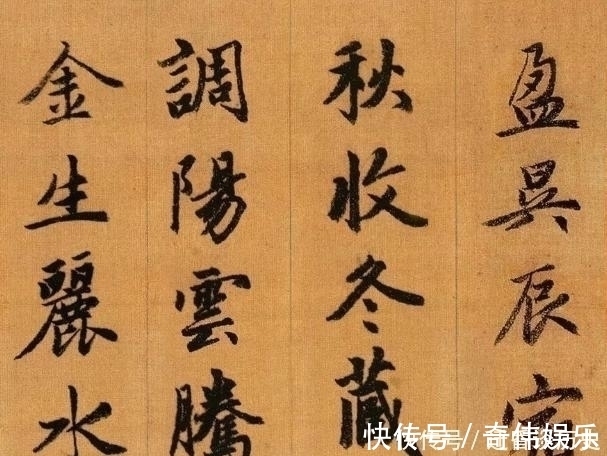 盈昃辰宿
秋收冬藏
調陽雲騰
金生麗水
快传号 / 奇伟娱乐